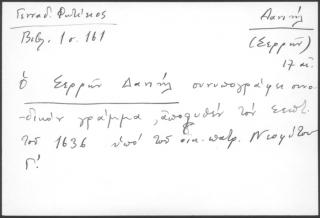 Γενναδ. Φυτίκιος
Βιβλ. 1 σ. 161
Δανιήλ
(Σερρῶν)
17 αἰ.
Ὁ Σερρῶν Δανιήλ συνυπογράφει συνο-
-δικὸν γράμμα, ἀπολυθὲν τὸν Σεπτ.
τοῦ 1636 ὑπὸ τοῦ οἰκ. πατρ. Νεοφύτου
Γ!